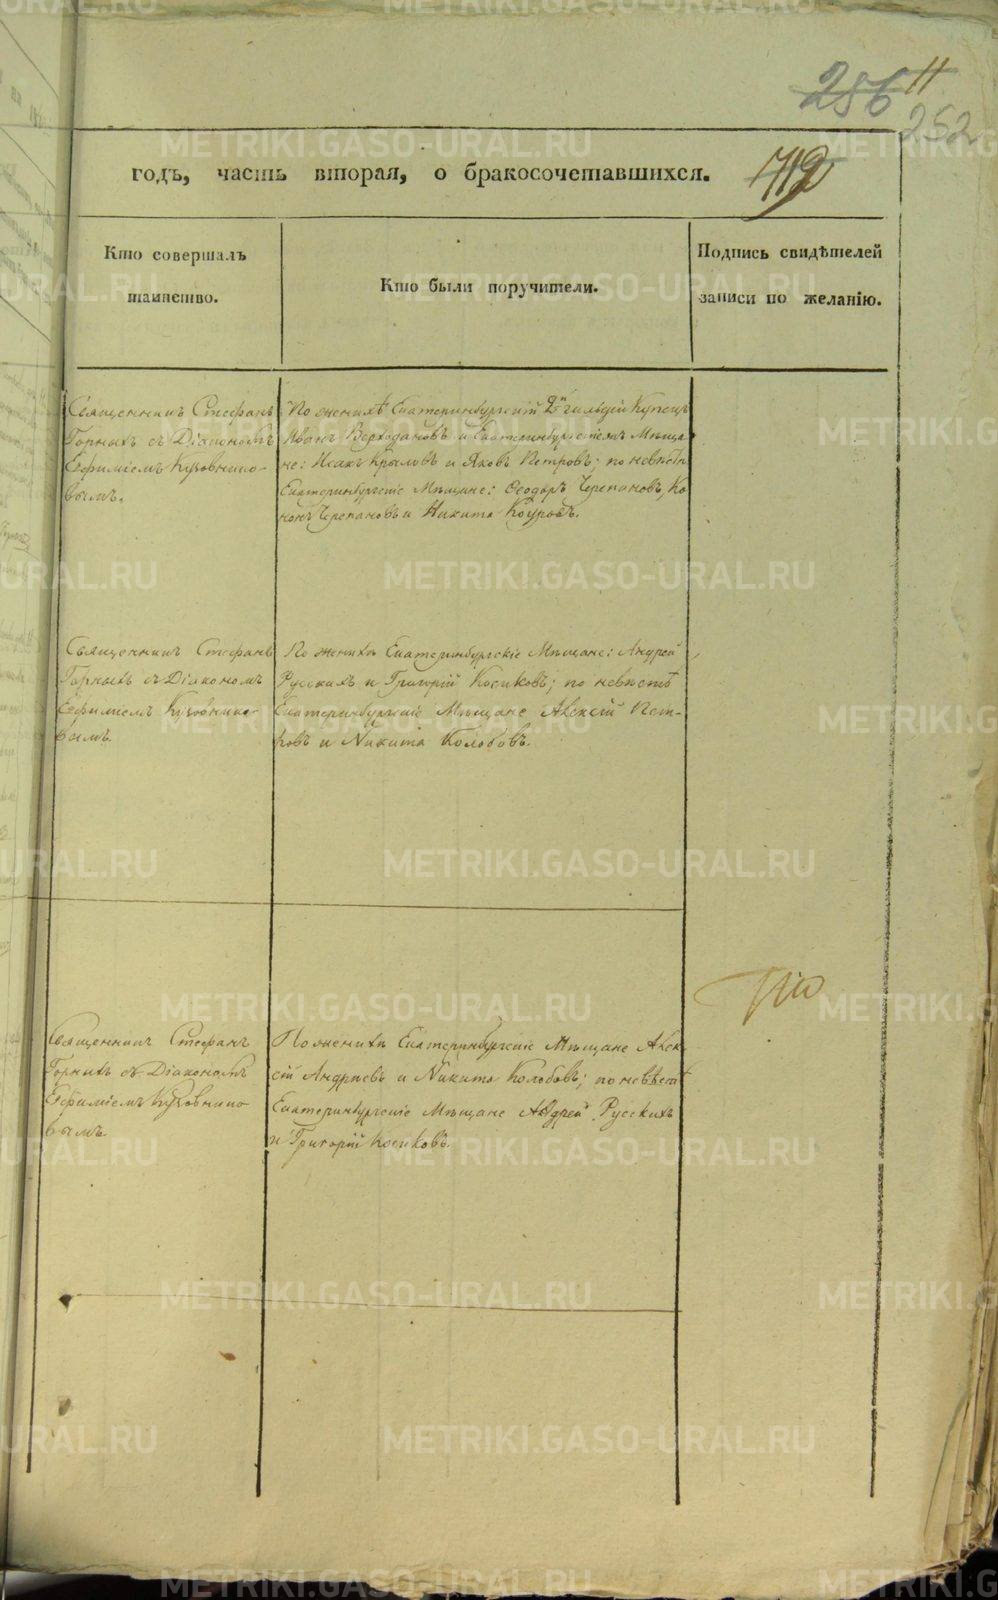 256 11
252
годъ, часть вторая, о бракосочетавшихся.
Кто совершалъ
таинство.
Кто были поручители.
Подпись свидѣтелей
записи по желанію.
Священникъ Стефанъ
Горныхъ съ Діакономъ
Ефиміемъ Кузовнико-
вымъ.
По женихѣ Екатеринбургскій 2й гильдіи Купецъ
Иванъ Верходановъ и Екатеринбургскіемъ Мѣща-
не: Исакъ Крыловъ и Яковъ Петровъ; по невѣстѣ
Екатеринбургскіе Мѣщане: Ѳеодоръ Черепановъ, Ко
нонъ Черепановъ и Никита Коуровъ.
Священникъ Стефанъ
Горныхъ съ Діакономъ
Ефиміемъ Кузовнико-
вымъ.
По женихѣ Екатеринбургскіе Мѣщане: Андрей
Русскихъ и Григорій Косиковъ; по невѣстѣ
Екатеринбургскіе Мѣщане Алексѣй Пет-
ровъ и Никита Колобовъ.
Священникъ Стефанъ
Горныхъ съ Діакономъ
Ефиміемъ Кузовнико
вымъ.
По женихѣ Екатеринбургскіе Мѣщане Алек-
сѣй Андреевъ и Никита Колобовъ; по невѣстѣ
Екатеринбургскіе Мѣщане Андрей Русскихъ
и Григорій Косиковъ.
METRIKI.GASO-URAL.RU